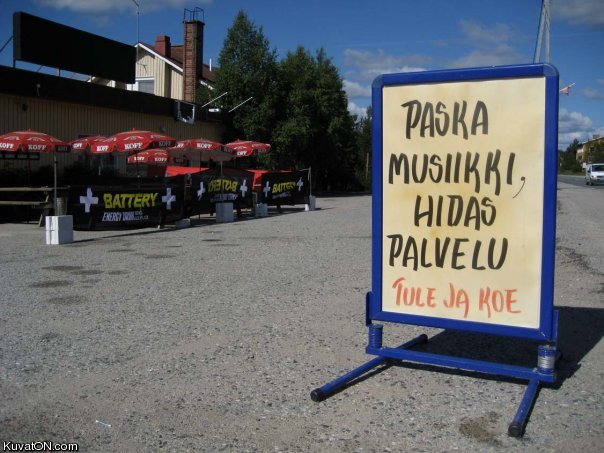 PASKA
MUSIIKKI,
HIDAS
PALVELU
TULE JA KOE
KOFF
KOFF
KOFF
KOFF
KOFF
BATTERY
ENERGY DRINK
BATTERY
BATTERY
KuvatON.com